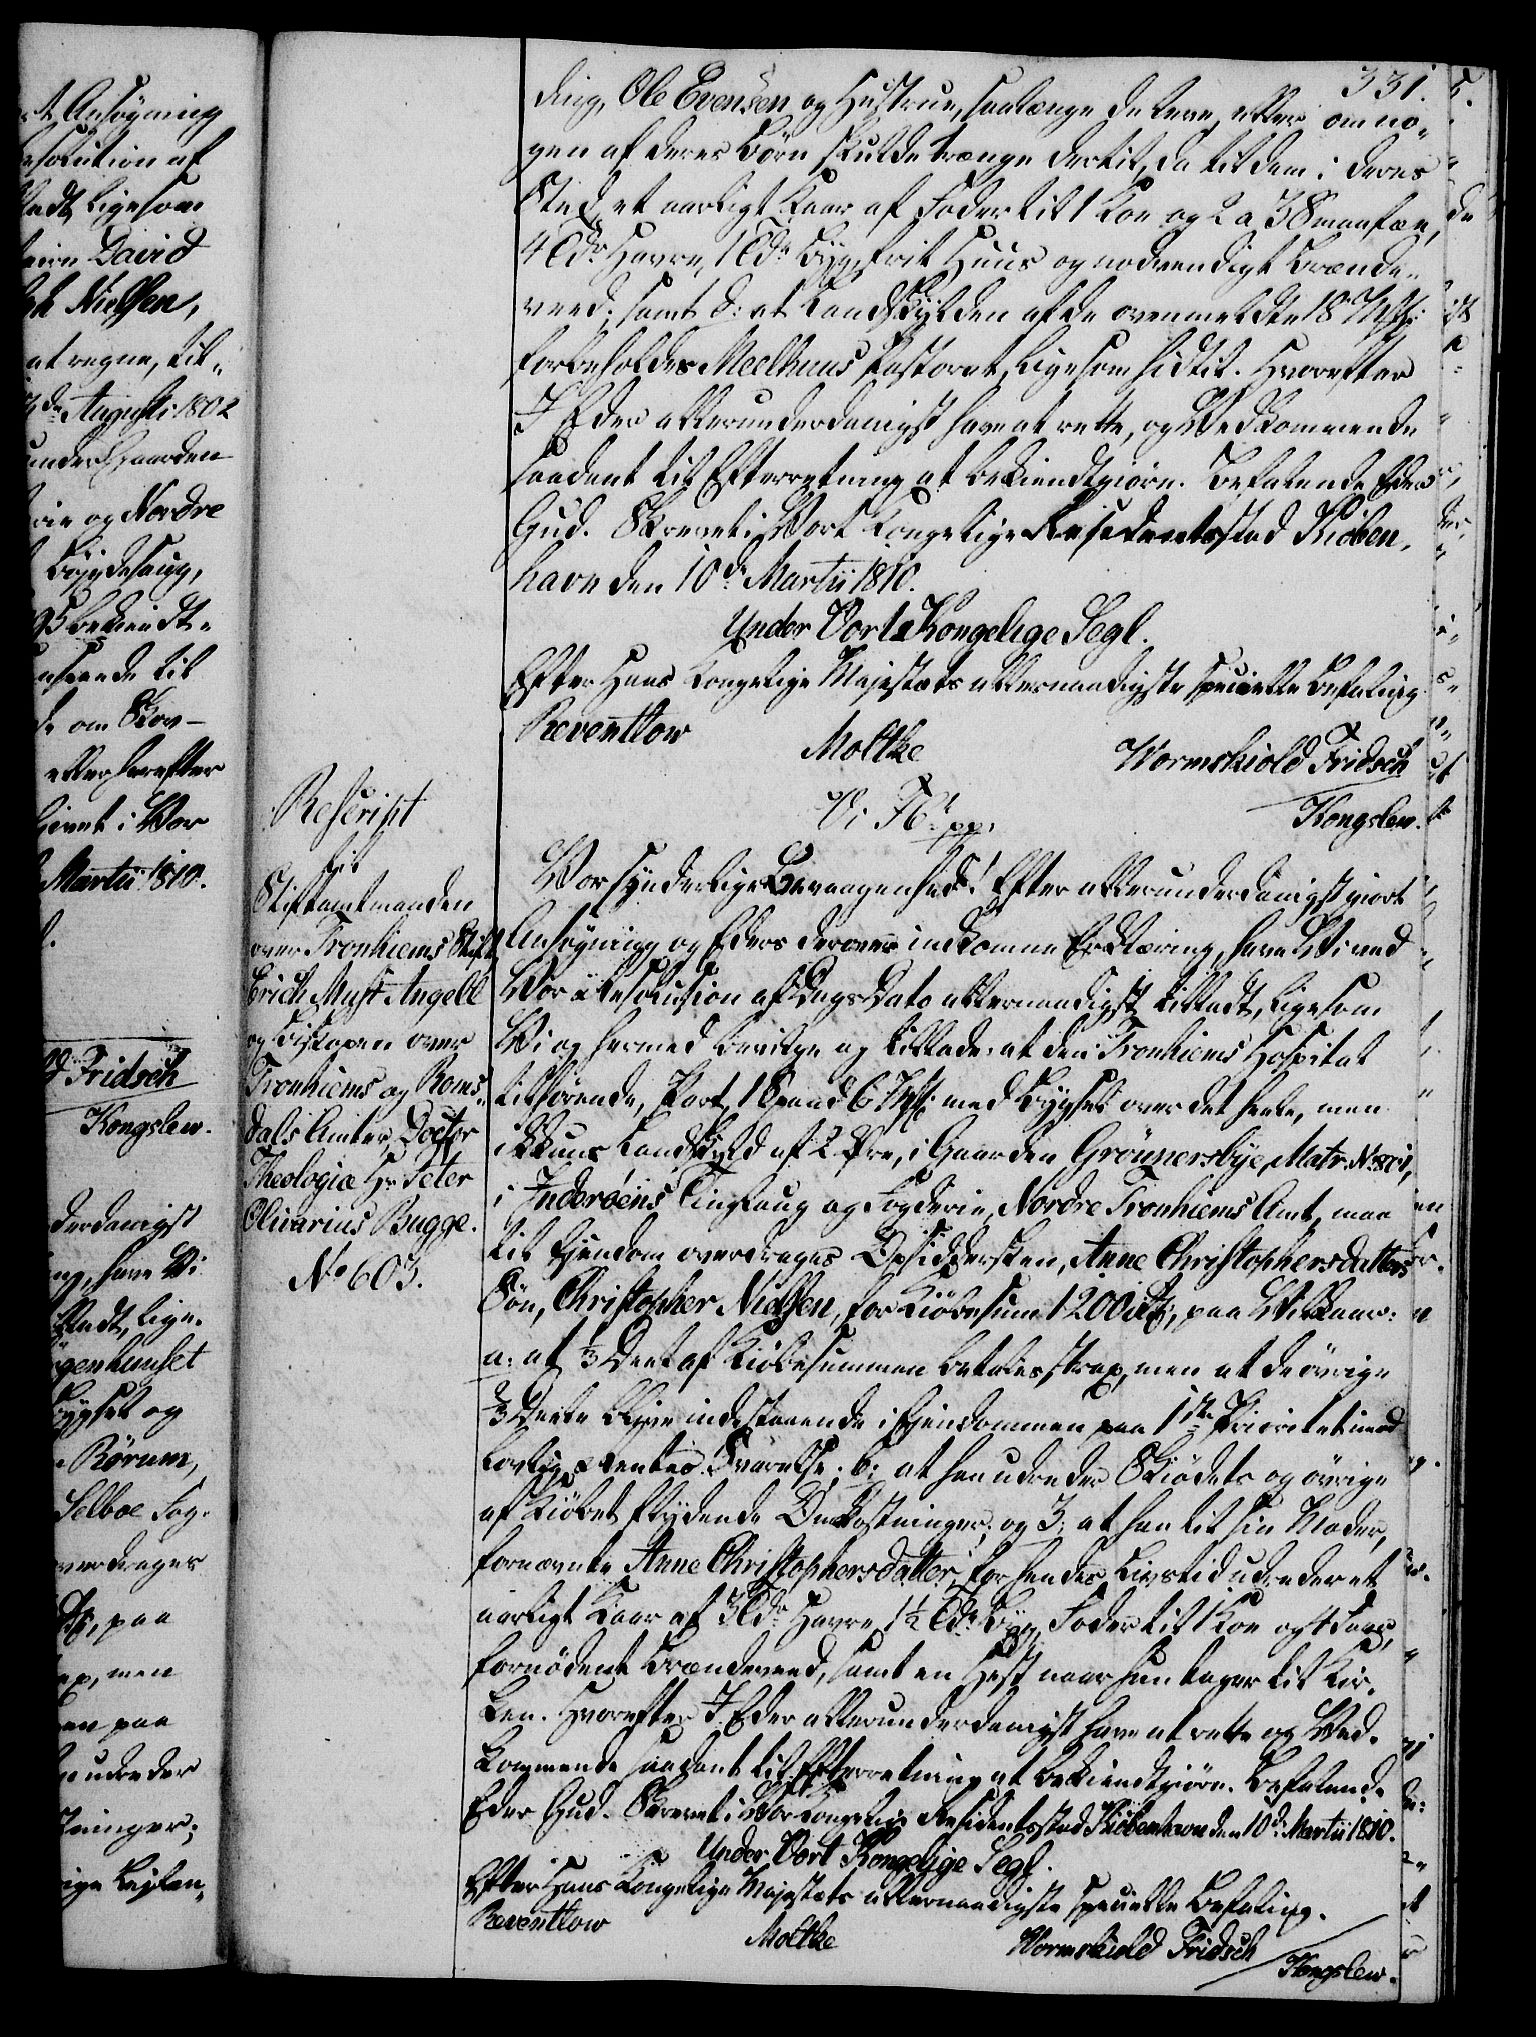 331.
ding, Ole Evensen og Hustrue, saalænge de leve, eller om no-
gen af deres Børn skulde trænge dertil, da til dem i deres
Sted, et aarligt Kaar af Foder til 1 Koe og 2 a 3 Smaafæe,
4 Tdr Havre, 1 Tde Byg, frit Huus og nødvendigt Brænde-
veed; samt d: at Landskylden af de ovenmeldte 18 Mkl:
forbeholdes Meelhuus Pastorat, ligesom hidtil. Hvorefter
I Eder allerunderdanigst have at rette, og Vedkommende
saadant til Efterretning at bekiendtgiøre. Befalende Eder
Gud. Skrevet i Vort Kongelige Residentsstad Kiöben-
havn den 10de Martii 1810.
Under Vort Kongelige Segl.
Efter Hans Kongelige Majestæts allernaadigste specielle Befaling.
Reventlow
Moltke
Wormskiold Fridsch
Kongslew.
Rescript
til
Stiftamtmanden
over Tronhiems Stift
Erich Must Angell
og Biskopen over
Tronhiems og Roms-
dals Amter, Doctor
Theologiæ Hr Peter
Olivarius Bugge.
No 603.
Vi F6. pp.
Vor synderlige Bevaagenhed! Efter allerunderdanigst giort
Ansøgning og Eders derover indkomne Erklæring, have Vi ved
Vor Resolution af Dags Dato allernaadigst tilladt, ligesom
Vi og hermed bevilge og tillade: at den Tronhiems Hospital
tilhørende Part, 1 Spand 6 Mkl: med Bygsel over det heele, men
ikkuns Landskyld af 2 Øre, i Gaarden Grönnersbye, Matr. No 801,
i Inderøens Tinglaug og Fogderie, Nordre Tronhiems Amt, maa
til Ejendom overdrages Opsidderskens, Anne Christophersdatters
Søn, Christopher Nielsen, for Kiøbesum 1200 rd:, paa Vilkaar:
a: at ⅓ Deel af Kiøbesummen betales strax, men at de øvrige
⅔ Deele blive indestaaende i Ejendommen paa 1ste Prioritet imod
lovlig Rentes Svarelse; b: at han udreder Skiødets og øvrige
af Kiøbet flydende Omkostninger; og 3: at han til sin Moder,
fornævnte Anne Christophersdatter, for hendes Livstid udreder et
aarligt Kaar af 3 Tdr Havre, 1½ Tde Byg, Foder til 1 Koe og 4 Faar,
fornødent Brændeveed, samt en Hest naar hun tager til Kir-
ken. Hvorefter I Eder allerunderdanigst have at rette og Ved-
kommende saadant til Efterretning at bekiendtgiøre. Befalende
Eder Gud. Skrevet i Vor Kongelige Residentsstad Kiöbenhavn den 10de Martii 1810.
Under Vort Kongelige Segl.
Efter Hans Kongelige Majestæts allernaadigste specielle Befaling.
Reventlow
Moltke
Wormskiold Fridsch
Kongslew.